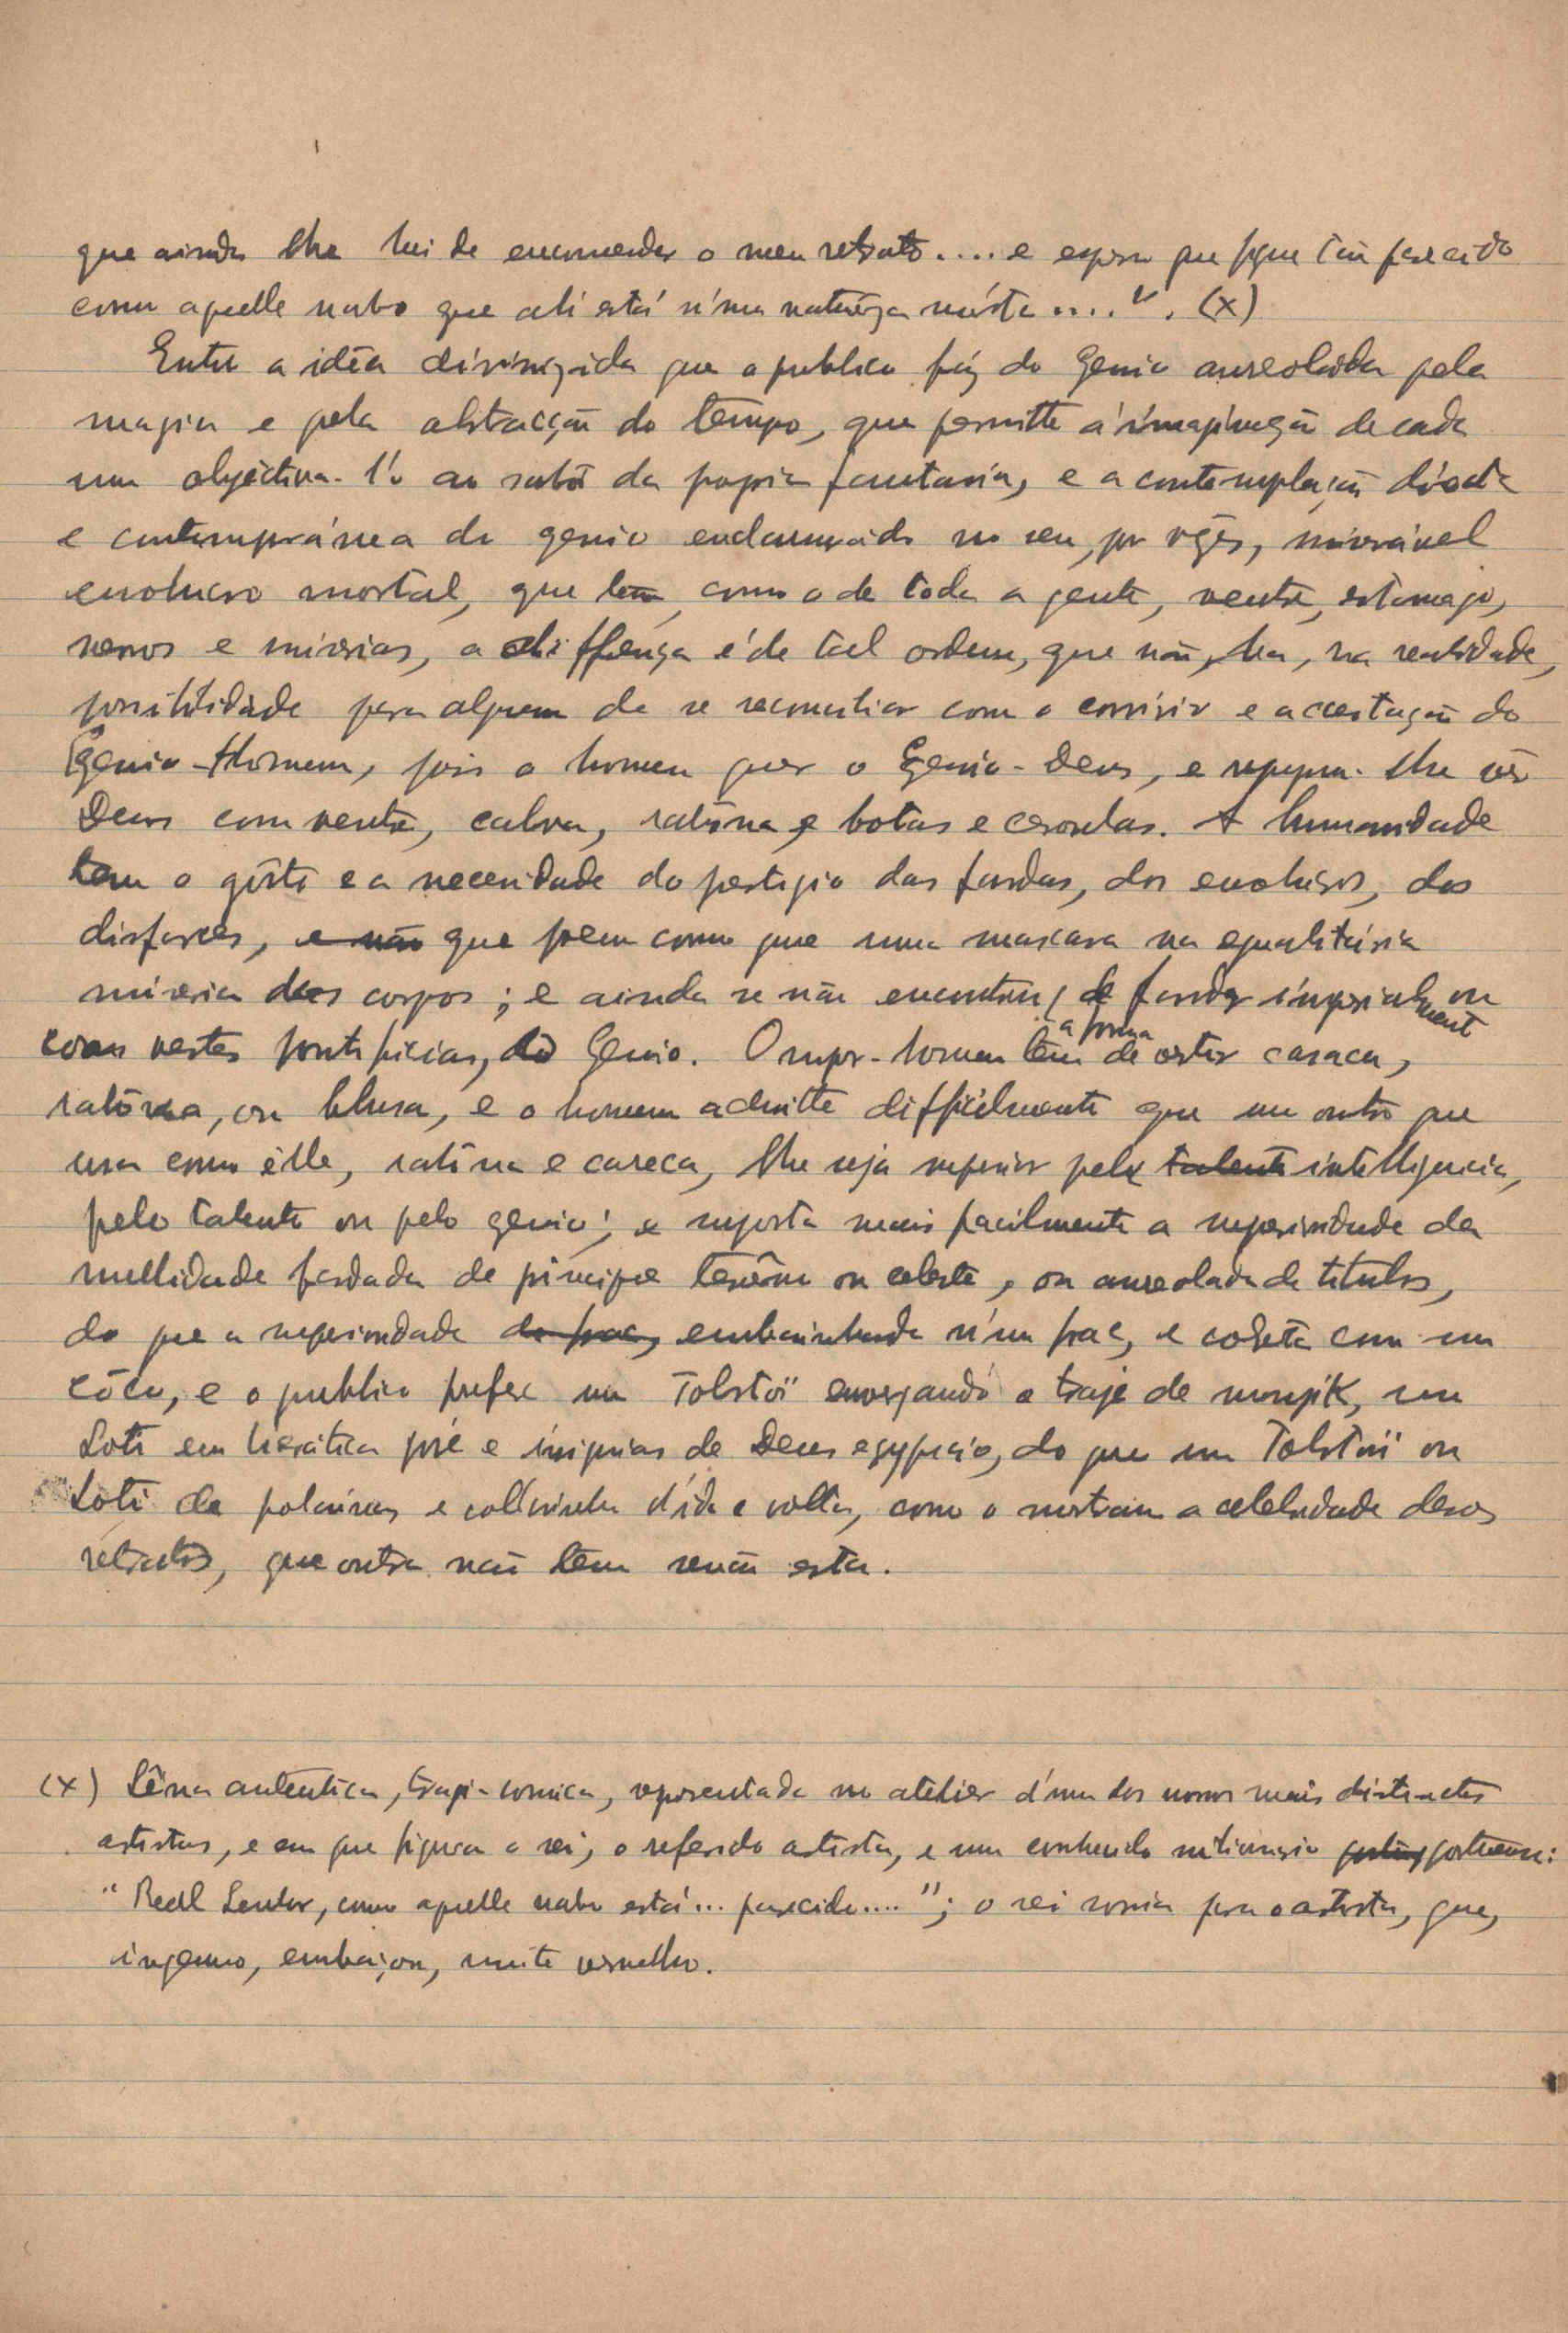 que ainda lhe hei de encomendar o meu retrato.... e espero que fique tão parecido
como aquelle nabo que ali está n'uma naturêza mórta....". (x)
Entre a idêa divinizida que o publico fáz do Genio aureolada pela
magia e pela abstracção do tempo, que permitte á imaginação de cada
um objéctiva-l'o ao sabôr da propria fantasia, e a contemplação dirécta
e contemporánea do genio enclausurado no seu, por vezes, miserável
envolucro mortal, que tem, como o de toda a gente, ventre, estomago,
nervos e miserias, a differença é de tal ordem, que não, ha, na realidade,
possibilidade para alguem de se reconciliar com o convivir e acceitação do
Genio-Homem, pois o homem quer o Genio-Deus, e repugna-lhe vêr
Deus com ventre, calva, rabôna, e botas e ceroulas. A humanidade
tem o gôsto e a necessidade do prestigio das fardas, dos envolucros, dos
disfarces, e não que põem como que uma mascara na egualitária
miseria dos corpos; e ainda se não encontrou farda imperial ou
vestes pontificias, do Genio. O super-homem têm a forma de vestir casaca,
rabôna, ou blusa, e o homem admitte difficilmente que um outro que
usa como êlle, rabôna e careca, lhe seja superior pela talento intelligencia,
pelo talento ou pelo genio; e suporta mais facilmente a superioridade da
nullidade fardada de principe terreno ou celeste, ou aureolada de titulos,
do que a superioridade do frac, embainhada n'um frac, e coberta com um
côco, e o publico prefere um Tolstoï envergando o traje de moujik, um
Loti em hierática pose e insignias de Deus egypcio, do que um Tolstoï ou
Loti de polainas e collarinho d'ida e volta, como o mostram a celebridade desses
retratos, que outra não têm senão esta.
(x) Cêna autentica, tragi-comica, representada no atelier d'um dos nossos mais distinctos
artistas, e em que figura o rei, o referido artista, e um conhecido milionario portuense:
"Real Senhor, como aquelle nabo está... parecido...."; o rei sorria para o artista, que,
ingenuo, embaçou, muito vermelho.